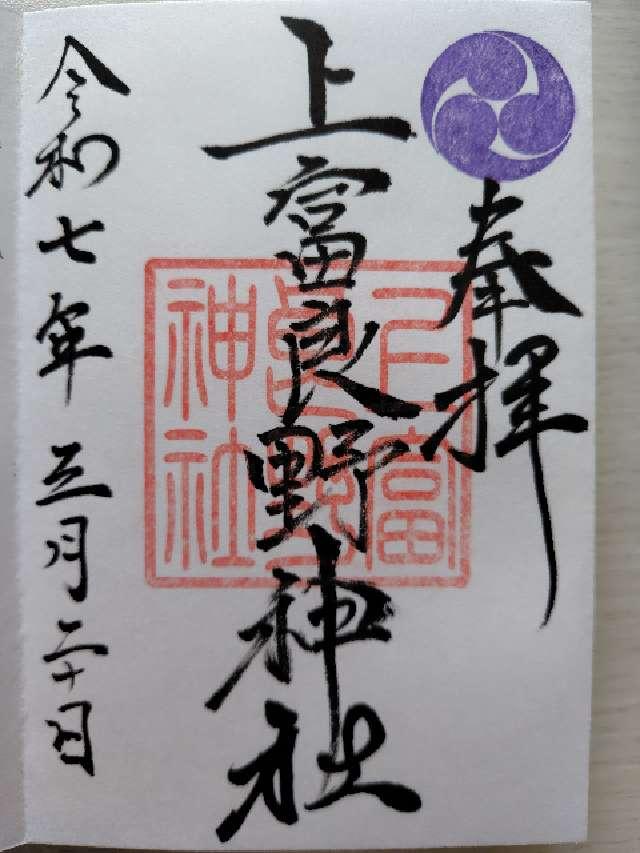 奉拝
上富良野神社
上富良野神社
令和七年三月二十日